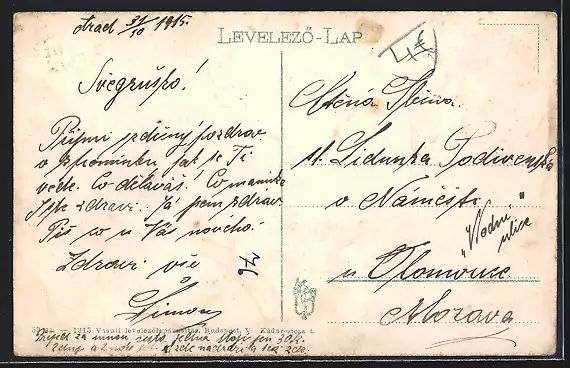 Arad 31/10 1915.
LEVELEZŐ-LAP
Švegruško!
Přijmi srdečný pozdrav
a vzpomínku jak se Ti
vede. Co děláváš! Co maminka
Jste zdravi. Já jsem zdráv
Piš co u Vás nového.
Zdraví vše
Šimon
76
Ctěná Slečna
Lidunka Podivenská
v Náměšti
"Vodní
ulice
u Olomouce
Morava
1915 Vasuti levelezőlapárusitás, Budapest, V Kádár-utcza 4.
za mnou cesta jedna stojí jen 30 K.